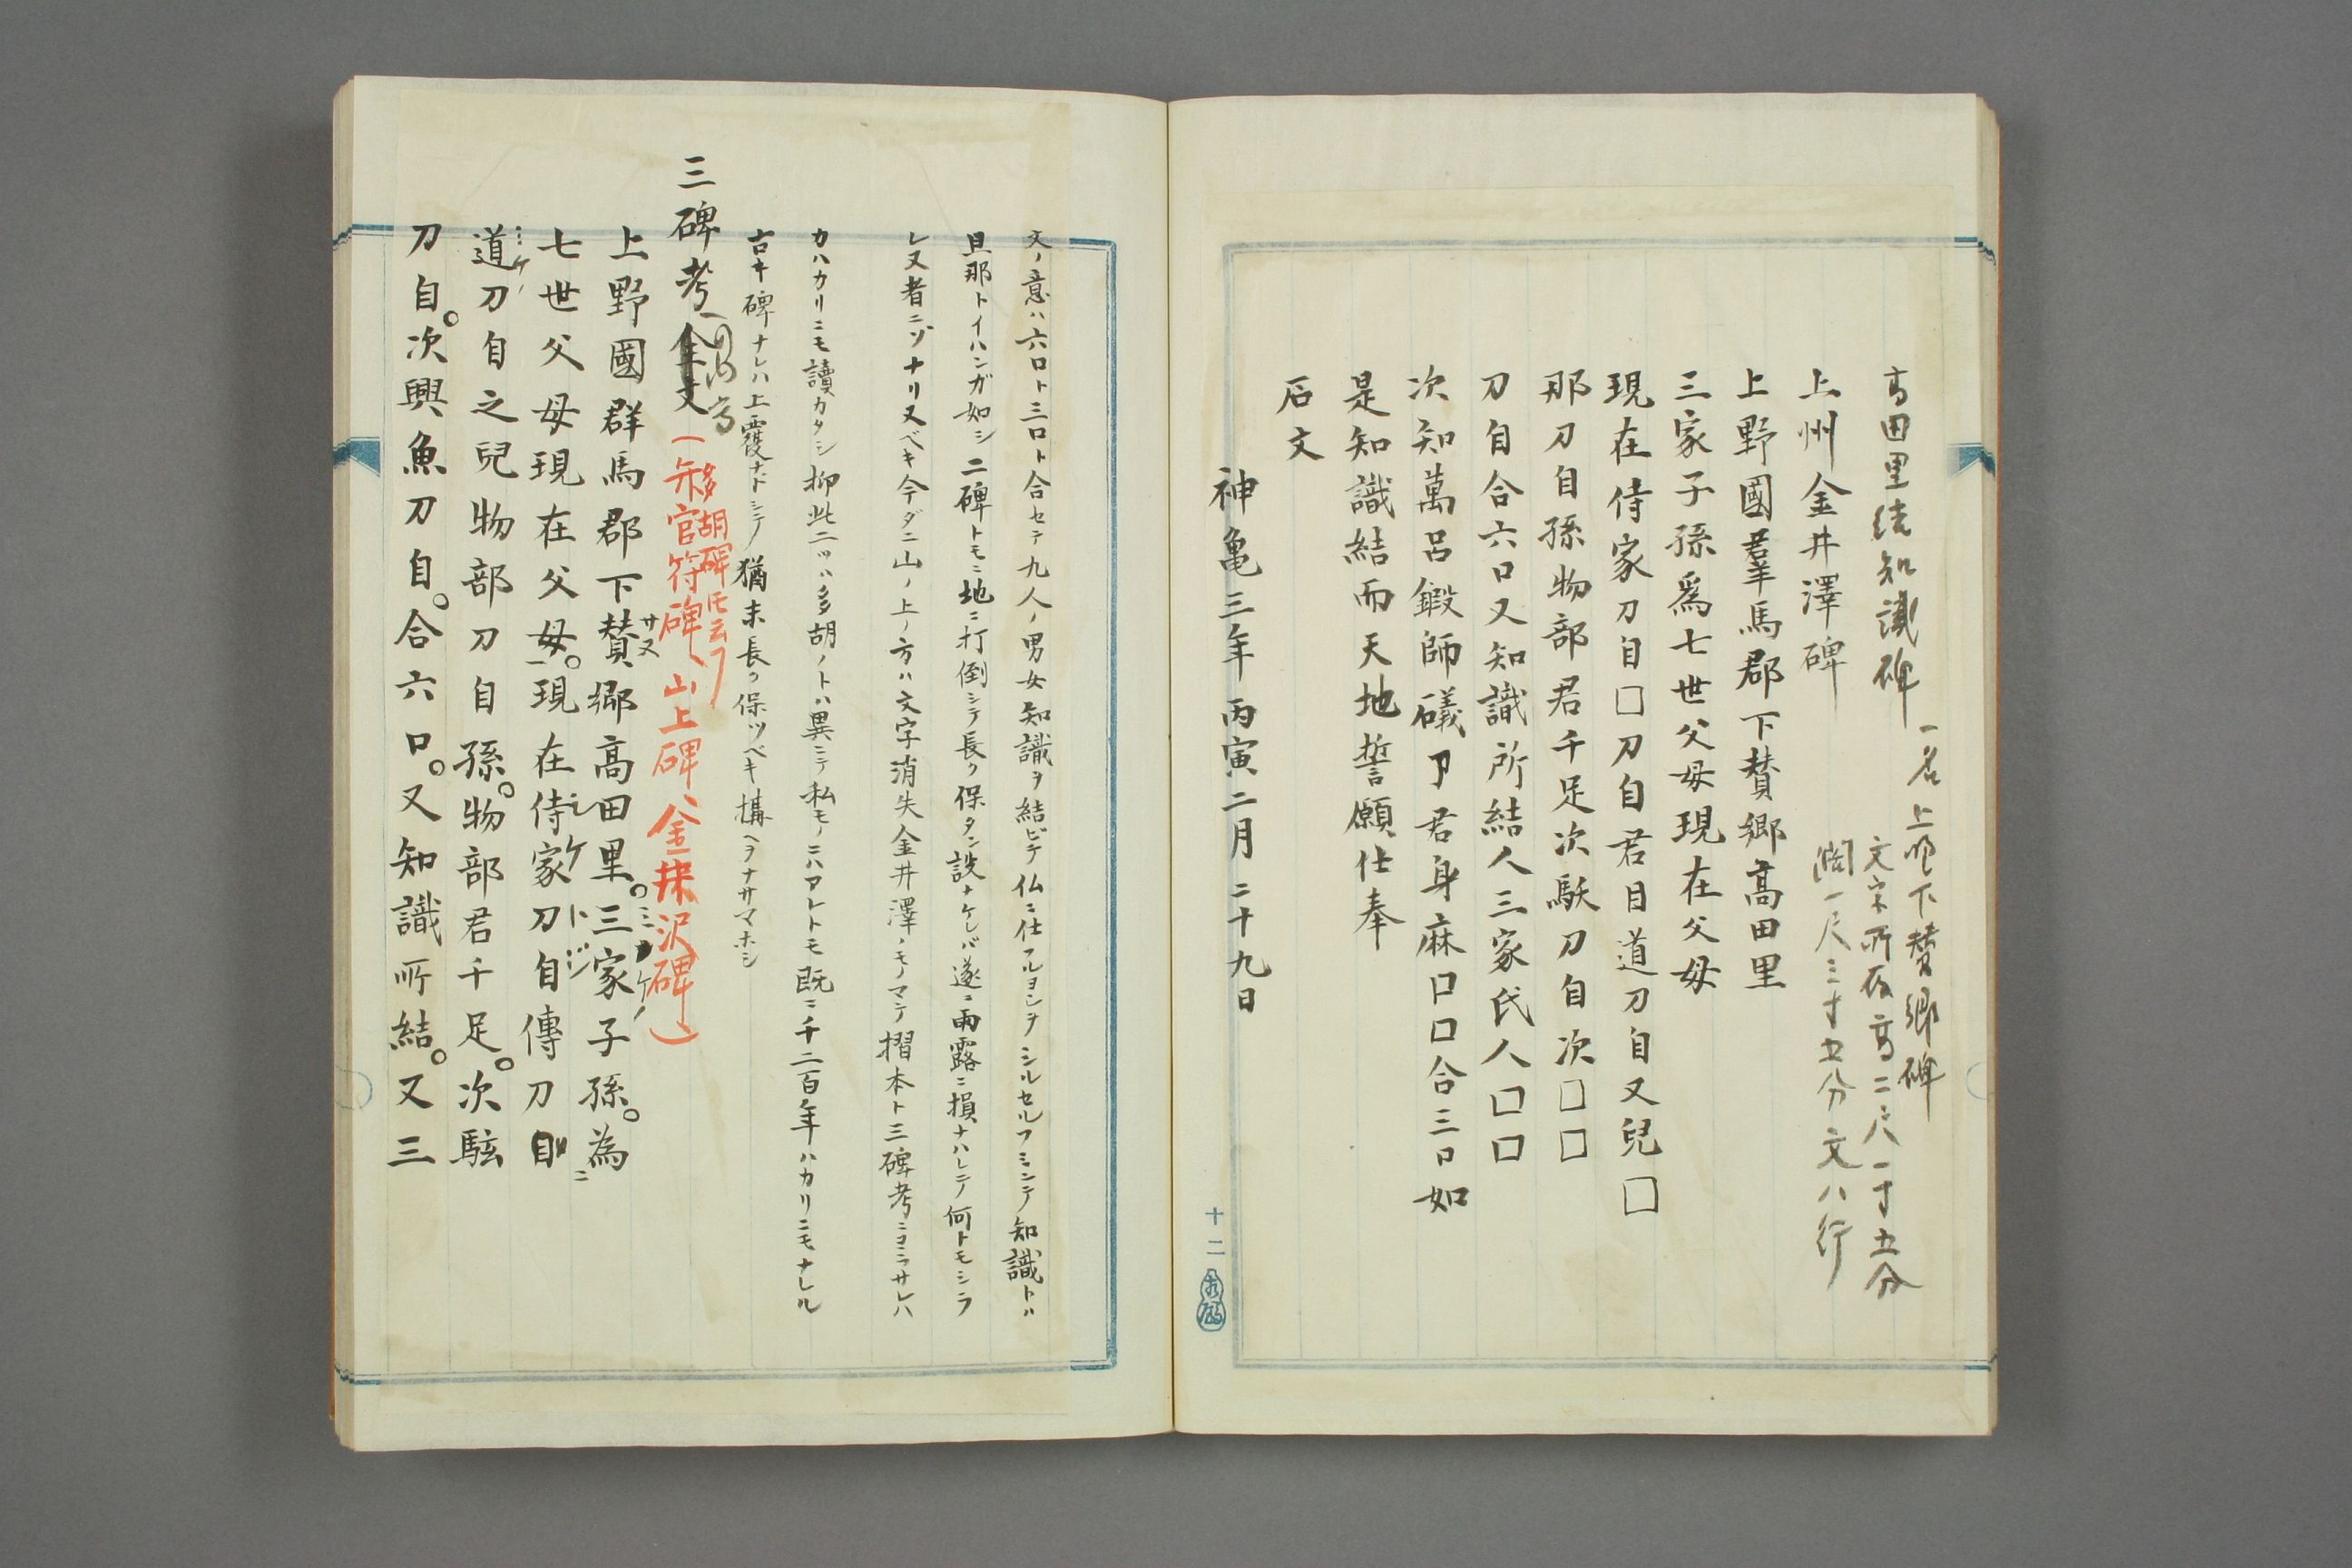 高田里結知識碑
一名上野下賛郷碑
文字所在高二尺一寸五分
濶一尺三寸五分文八行
上州金井澤碑
上野國羣馬郡下賛郷高田里
三家子孫爲七世父母現在父母
現在侍家刀自□刀自君目道刀自又兒□
那刀自孫物部君千足次馱刀自次□□
刀自合六口又知識所結人三家氏人□□
次知萬呂鍛師礒ア君身麻□□合三口如
是知識結而天地誓願仕奉
石文
神亀三年丙寅二月二十九日
十二
文ノ意ハ六口ト三口ト合セテ九人ノ男女知識ヲ結ビテ仏ニ仕フルヨシヲシルセルフミニテ知識トハ
旦那トイハンガ如シ二碑トモニ地ニ打倒シテ長ク保タン設ナケレバ遂ニ雨露ニ損ナハレテ何トモシラ
レヌ者ニゾナリヌベキ今ダニ山ノ上ノ方ハ文字消失金井澤ノモノマデ摺本ト三碑考ニヨラサレハ
カハカリニモ讀カタシ抑此二ツハ多胡ノトハ異ニテ私モノニハアレトモ既ニ千二百年ハカリニモナレル
古キ碑ナレハ上覆ナトシテ猶末長ク保ツベキ構ヘヲナサマホシ
三碑考全文
(弥官符碑、山上碑、金井沢碑)
多胡碑氏云フ
上野國群馬郡下賛郷高田里。三家子孫。為
サヌ
ミヤケノ
七世父母現在父母。現在侍家刀自傳刀自
ケトジ
ニ
道刀自之兒物部刀自孫。物部君千足。次駭
ミケノ
刀自。次興魚刀自。合六口。又知識所結。又三